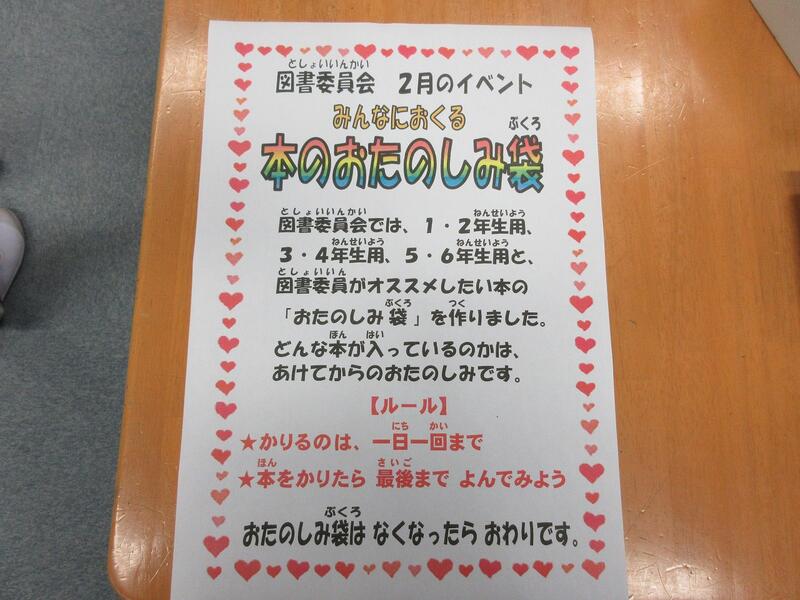 としょいいんかい
図書委員会 2月のイベント
みんなにおくる
ぶくろ
本のおたのしみ袋
としょいいんかい ねんせいよう
図書委員会では、1・2年生用、
ねんせいよう ねんせいよう
3・4年生用、5・6年生用と、
としょいいん
図書委員がオススメしたい本の
ぶくろ つく
「おたのしみ袋」を作りました。
ほん はい
どんな本が入っているのかは、
あけてからのおたのしみです。
【ルール】
にち かい
★かりるのは、一日一回まで
ほん さいご
★本をかりたら 最後まで よんでみよう
ぶくろ
おたのしみ袋は なくなったら おわりです。